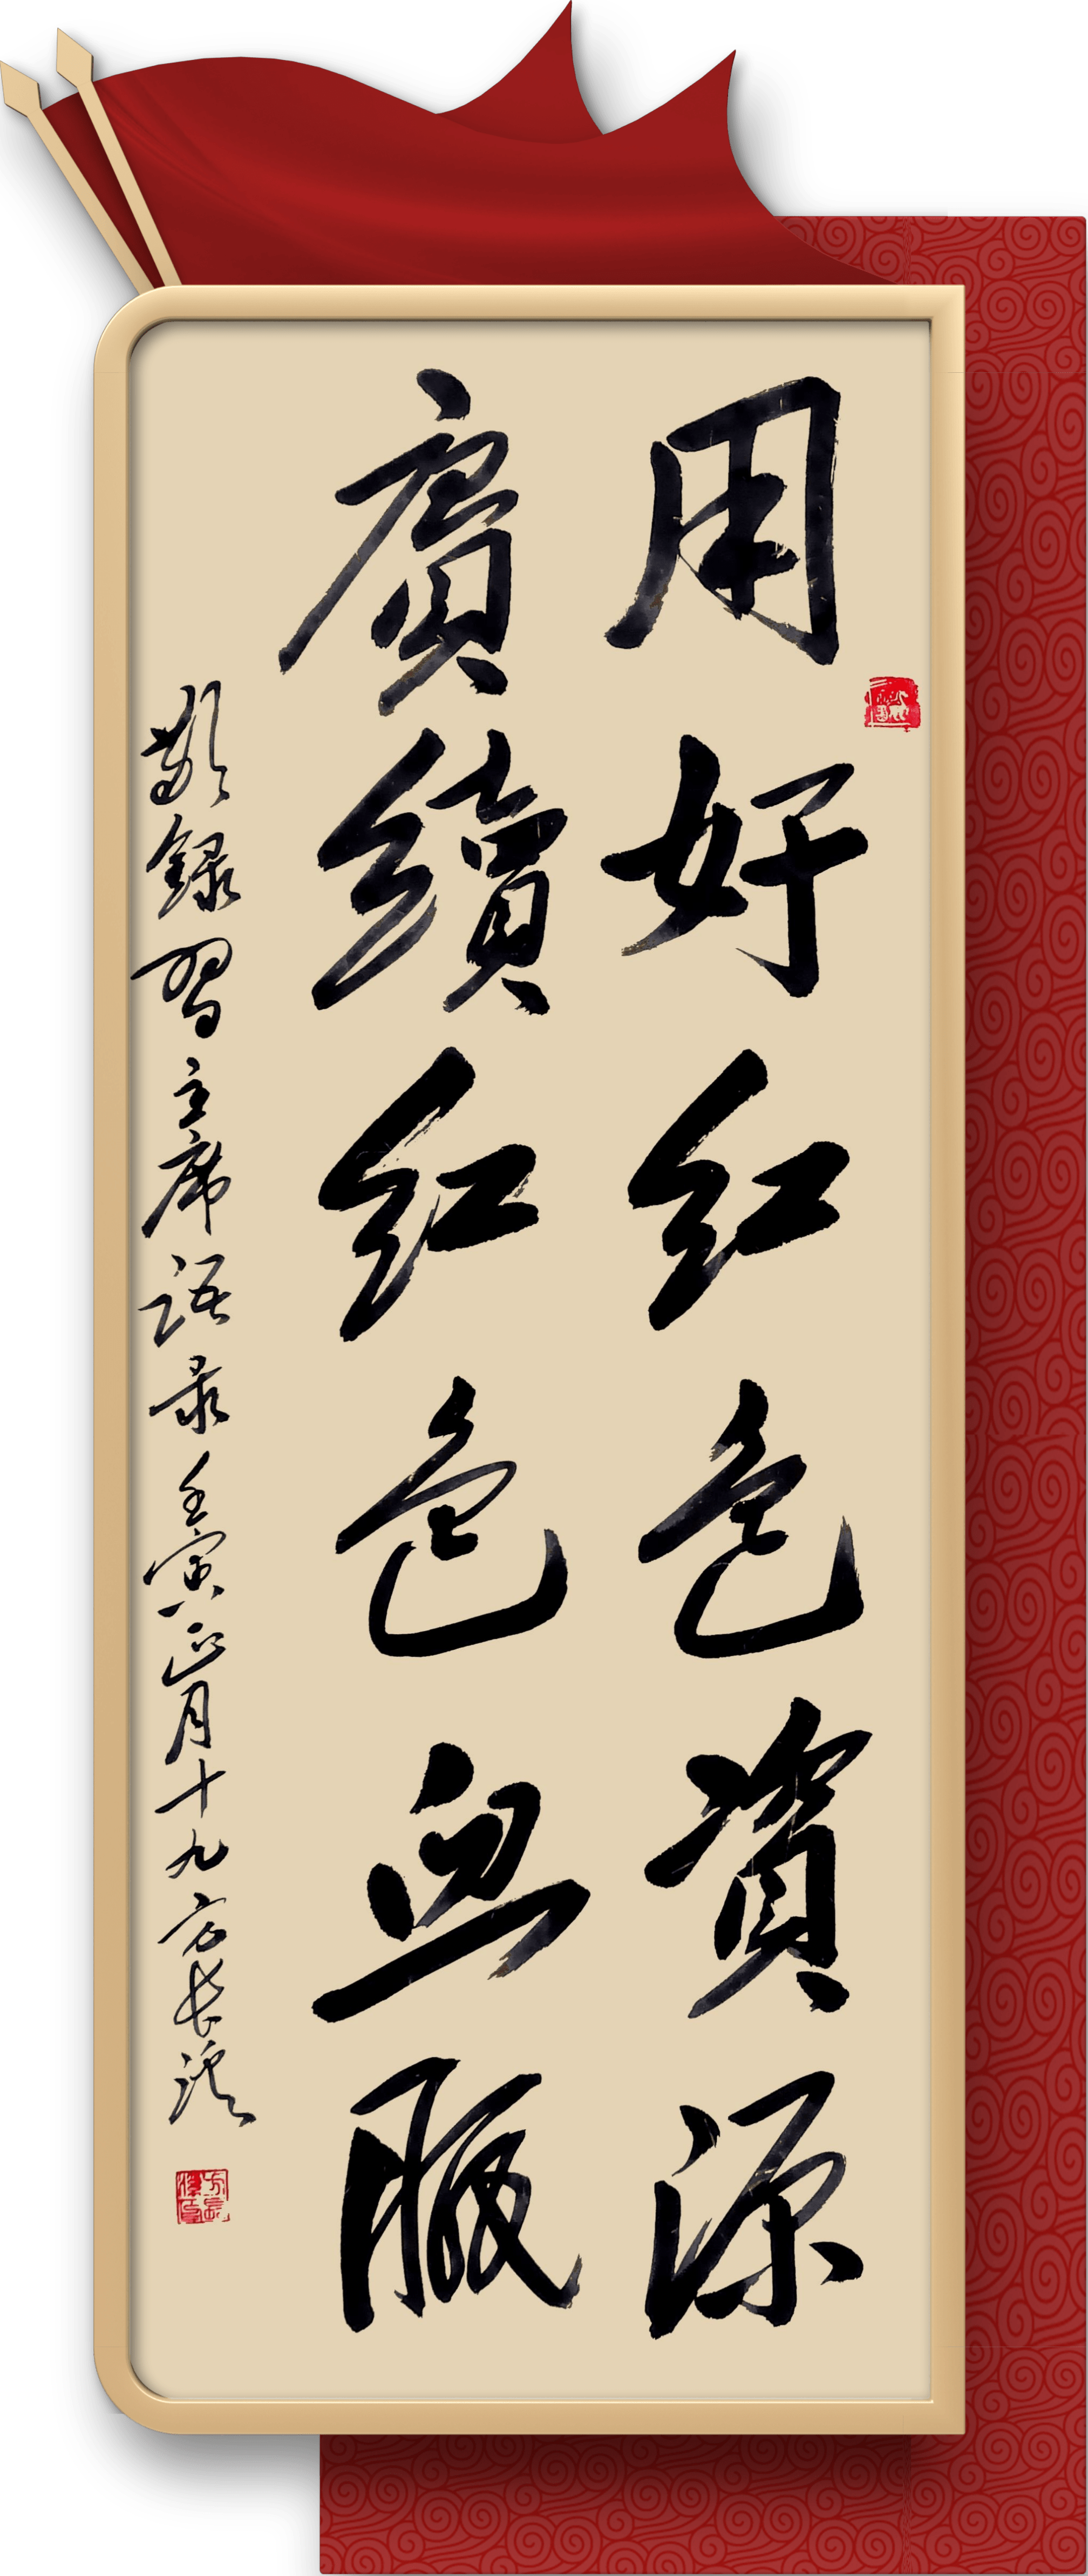 用好红色资源
賡續红色血脈
敬録习主席语录壬寅正月十九方长溪